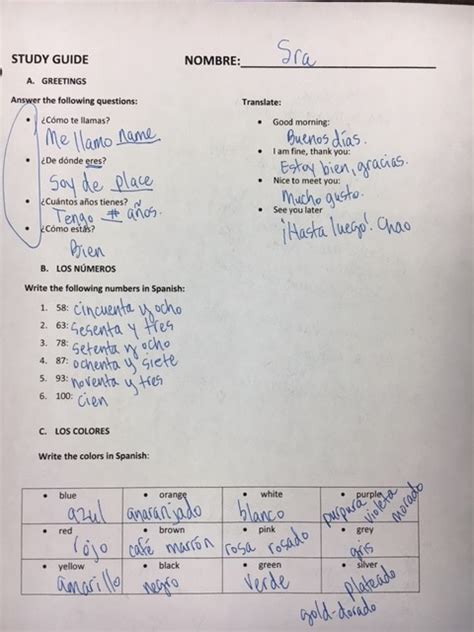 STUDY GUIDE NOMBRE: Sra
A. GREETINGS
Answer the following questions:
• ¿Cómo te llamas?
Me llamo name
• ¿De dónde eres?
Soy de place
• ¿Cuántos años tienes?
Tengo # años.
• ¿Cómo estás?
Bien
Translate:
• Good morning:
Buenos días.
• I am fine, thank you:
Estoy bien, gracias.
• Nice to meet you:
Mucho gusto.
• See you later
¡Hasta luego! Chao
B. LOS NÚMEROS
Write the following numbers in Spanish:
1. 58: cincuenta y ocho
2. 63: sesenta y tres
3. 78: setenta y ocho
4. 87: ochenta y siete
5. 93: noventa y tres
6. 100: cien
C. LOS COLORES
Write the colors in Spanish:
• blue • orange • white • purple
azul anaranjado blanco purpura violeta morado
• red • brown • pink • grey
rojo café marrón rosa rosado gris
• yellow • black • green • silver
amarillo negro verde plateado
gold-dorado